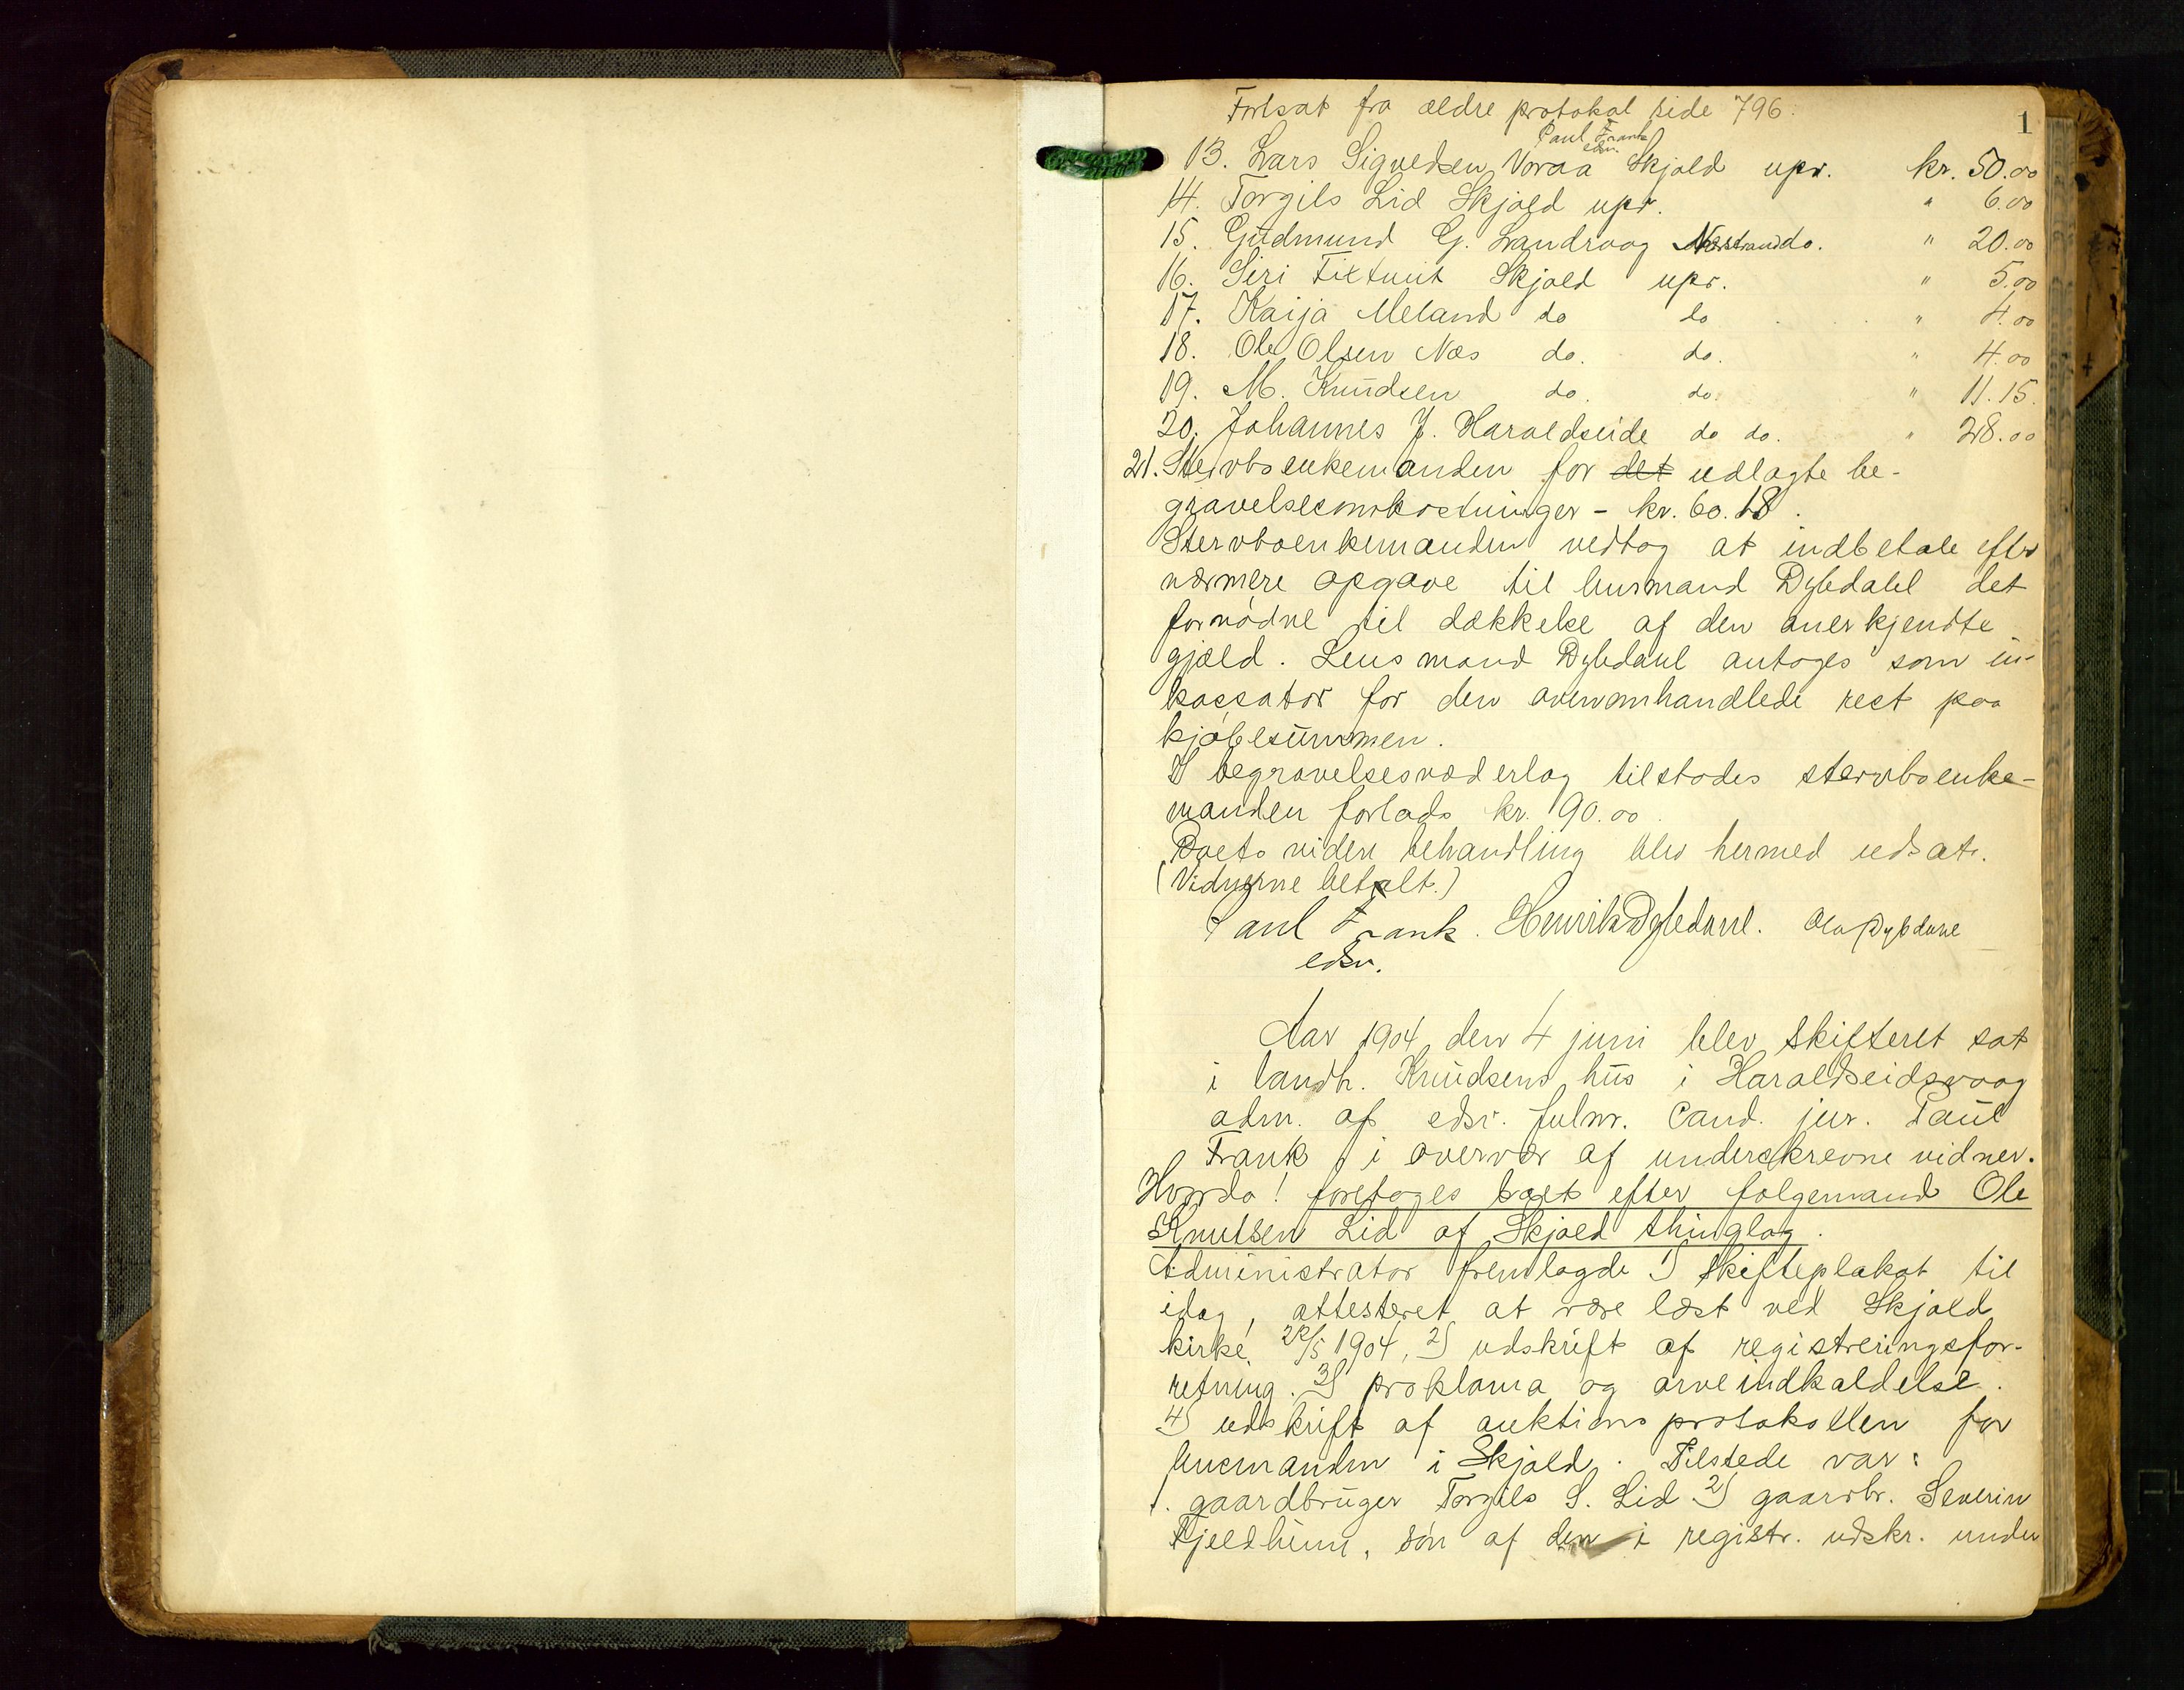 Fortsat fra ældre protokol side 796.
1
Paul Frank
edsv.
13. Lars Sigvedsen Voraa Skjold upr. kr. 50.00
14. Torgils Lid Skjold upr. " 6.00
15. Gudmund G. Landraag Nærstrand do. " 20.00
16. Siri Tixtveit Skjold upr. " 5.00
17. Kaija Meland do do " 4.00
18. Ole Olsen Næs do. do. " 4.00
19. M. Knudsen do. do. " 11.15.
20. Johannes J. Haraldseide do do. " 28.00
21. Stervboenkemanden for det udlagte be-
gravelsesomkostninger - kr. 60.18.
Stervboenkemanden vedtog at indbetale efter
nærmere opgave til lensmand Dybdahl det
fornødne til dækkelse af den anerkjendte
gjæld. Lensmand Dybdahl antoges som in-
kassator for den ovenomhandlede rest paa
kjøbesummen.
I begravelsesvederlag tilstodes stervboenke-
manden forlods kr. 90.00
Boets videre behandling blev hermed udsat.
(Vidnerne betalt.)
Paul Frank. Henrik Dybdahl. Ola Dybdahl
edsv.
Aar 1904 den 4 juni blev skifteret sat
i landh. Knudsens hus i Haraldseidsvaag
adm. af edsv. fulm. Cand. jur. Paul
Frank i overvær af underskrevne vidner.
Hvorda! foretoges boet efter følgemand Ole
Knutsen Lid af Skjold thinglag.
Administrator fremlagde 1) skifteplakat til
idag, attesteret at være læst ved Skjold
kirke 22/5 1904, 2) udskrift af registreringsfor-
retning. 3) proklama og arveindkaldelse.
4) udskrift af auktionsprotokollen for
lensmanden i Skjold. Tilstede var:
1. gaardbruger Torgils S. Lid 2) gaardbr. Severin
Fjeldheim, søn af den i registr. udskr. under